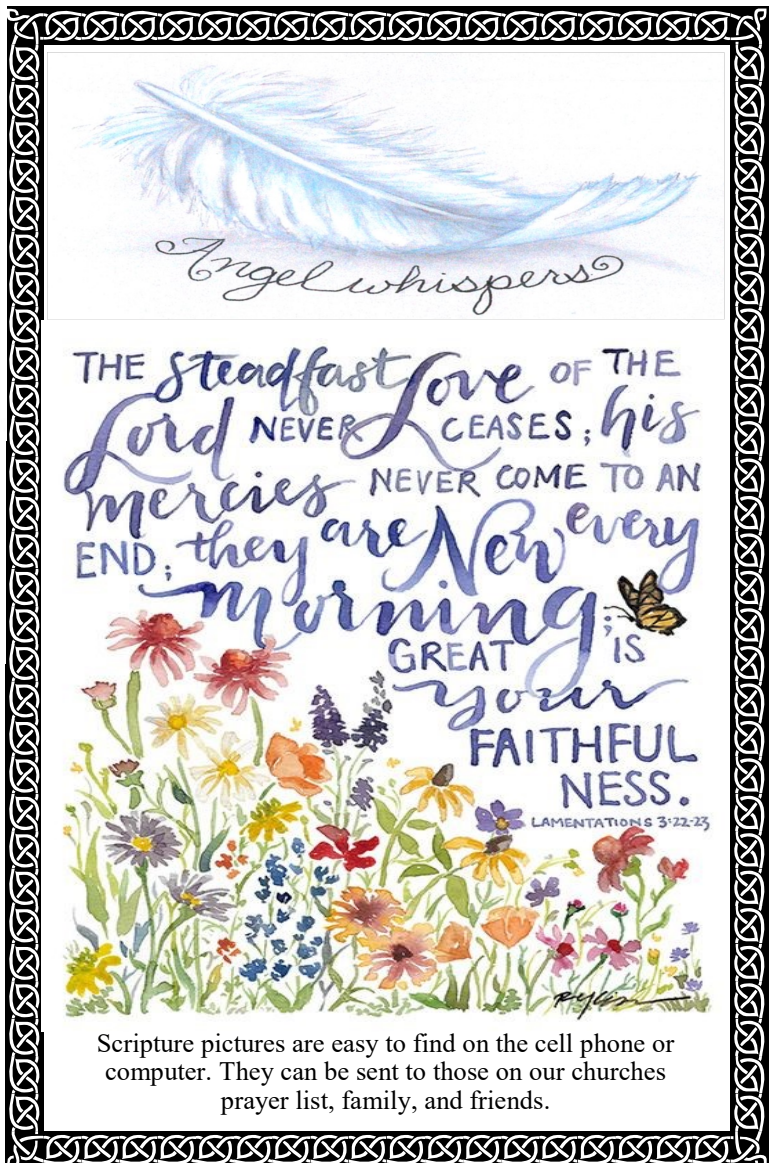 Angel whispers
THE steadfast Love OF THE
Lord NEVER CEASES; his
mercies NEVER COME TO AN
END; they are New every
morning;
GREAT IS
your
FAITHFUL
NESS.
LAMENTATIONS 3:22-23
Scripture pictures are easy to find on the cell phone or
computer. They can be sent to those on our churches
prayer list, family, and friends.